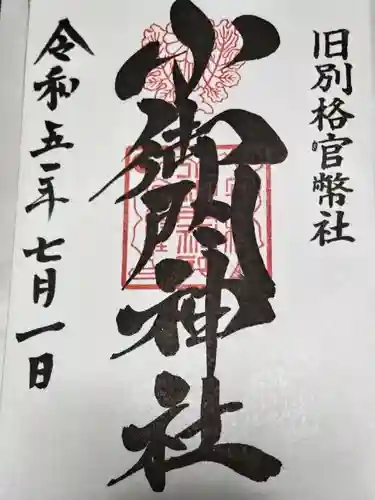 旧別格官幣社
小御門神社
令和五年七月一日